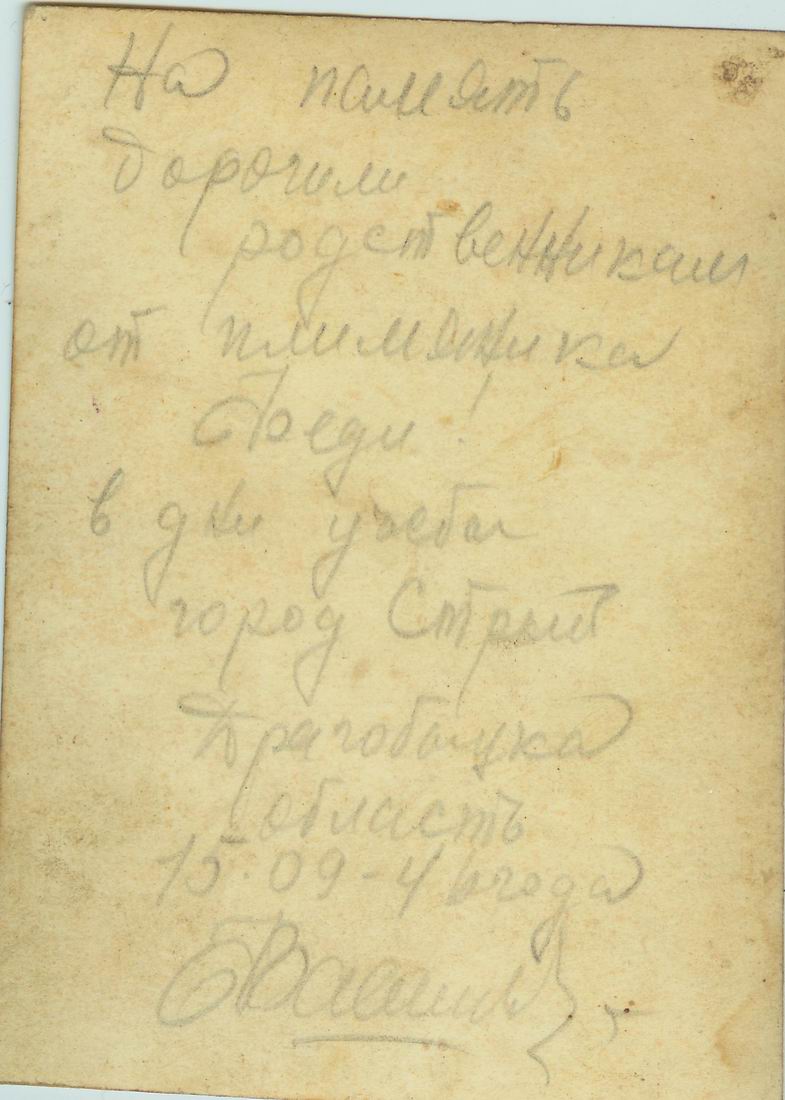 На память
дорогим
родственникам
от плимяника
Феди!
в дни учебы
город Стрый
Драгобыцка
область
15.09-46 года